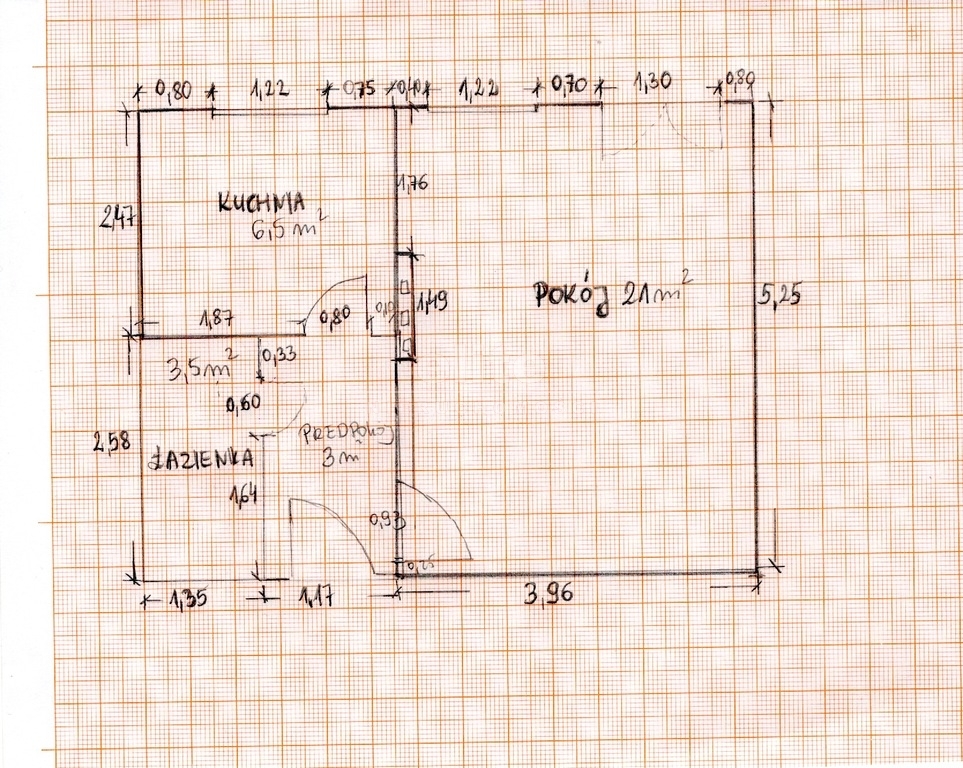 0,80 1,22 0,75 0,40 1,22 0,70 1,30 0,80
1,76
2,47
KUCHNIA
6,5 m²
POKÓJ 21 m²
5,25
1,49
1,87
0,80
3,5 m²
0,33
0,60
2,58
ŁAZIENKA
PRZEDPOKÓJ
3 m²
1,64
0,93
0,25
1,35 1,17 3,96